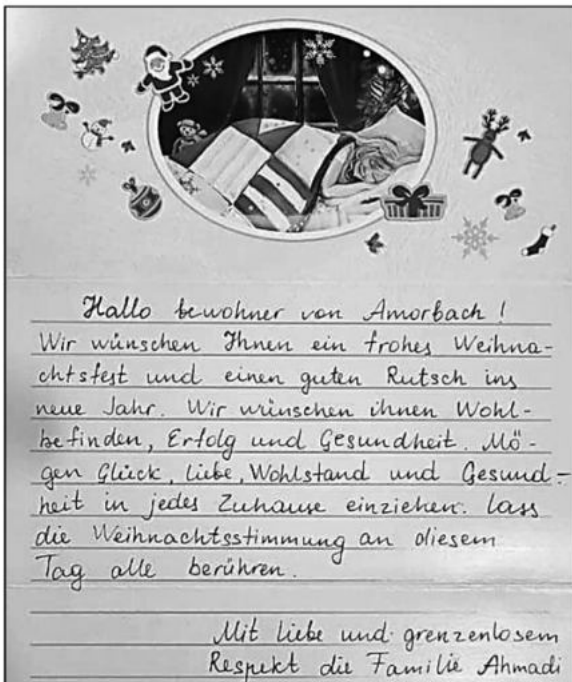 Hallo bewohner von Amorbach!
Wir wünschen Ihnen ein frohes Weihna-
chtsfest und einen guten Rutsch ins
neue Jahr. Wir wünschen ihnen Wohl-
befinden, Erfolg und Gesundheit. Mö-
gen Glück, liebe, Wohlstand und Gesund-
heit in jedes Zuhause einziehen. lass
die Weihnachtsstimmung an diesem
Tag alle berühren.
Mit liebe und grenzenlosem
Respekt die Familie Ahmadi